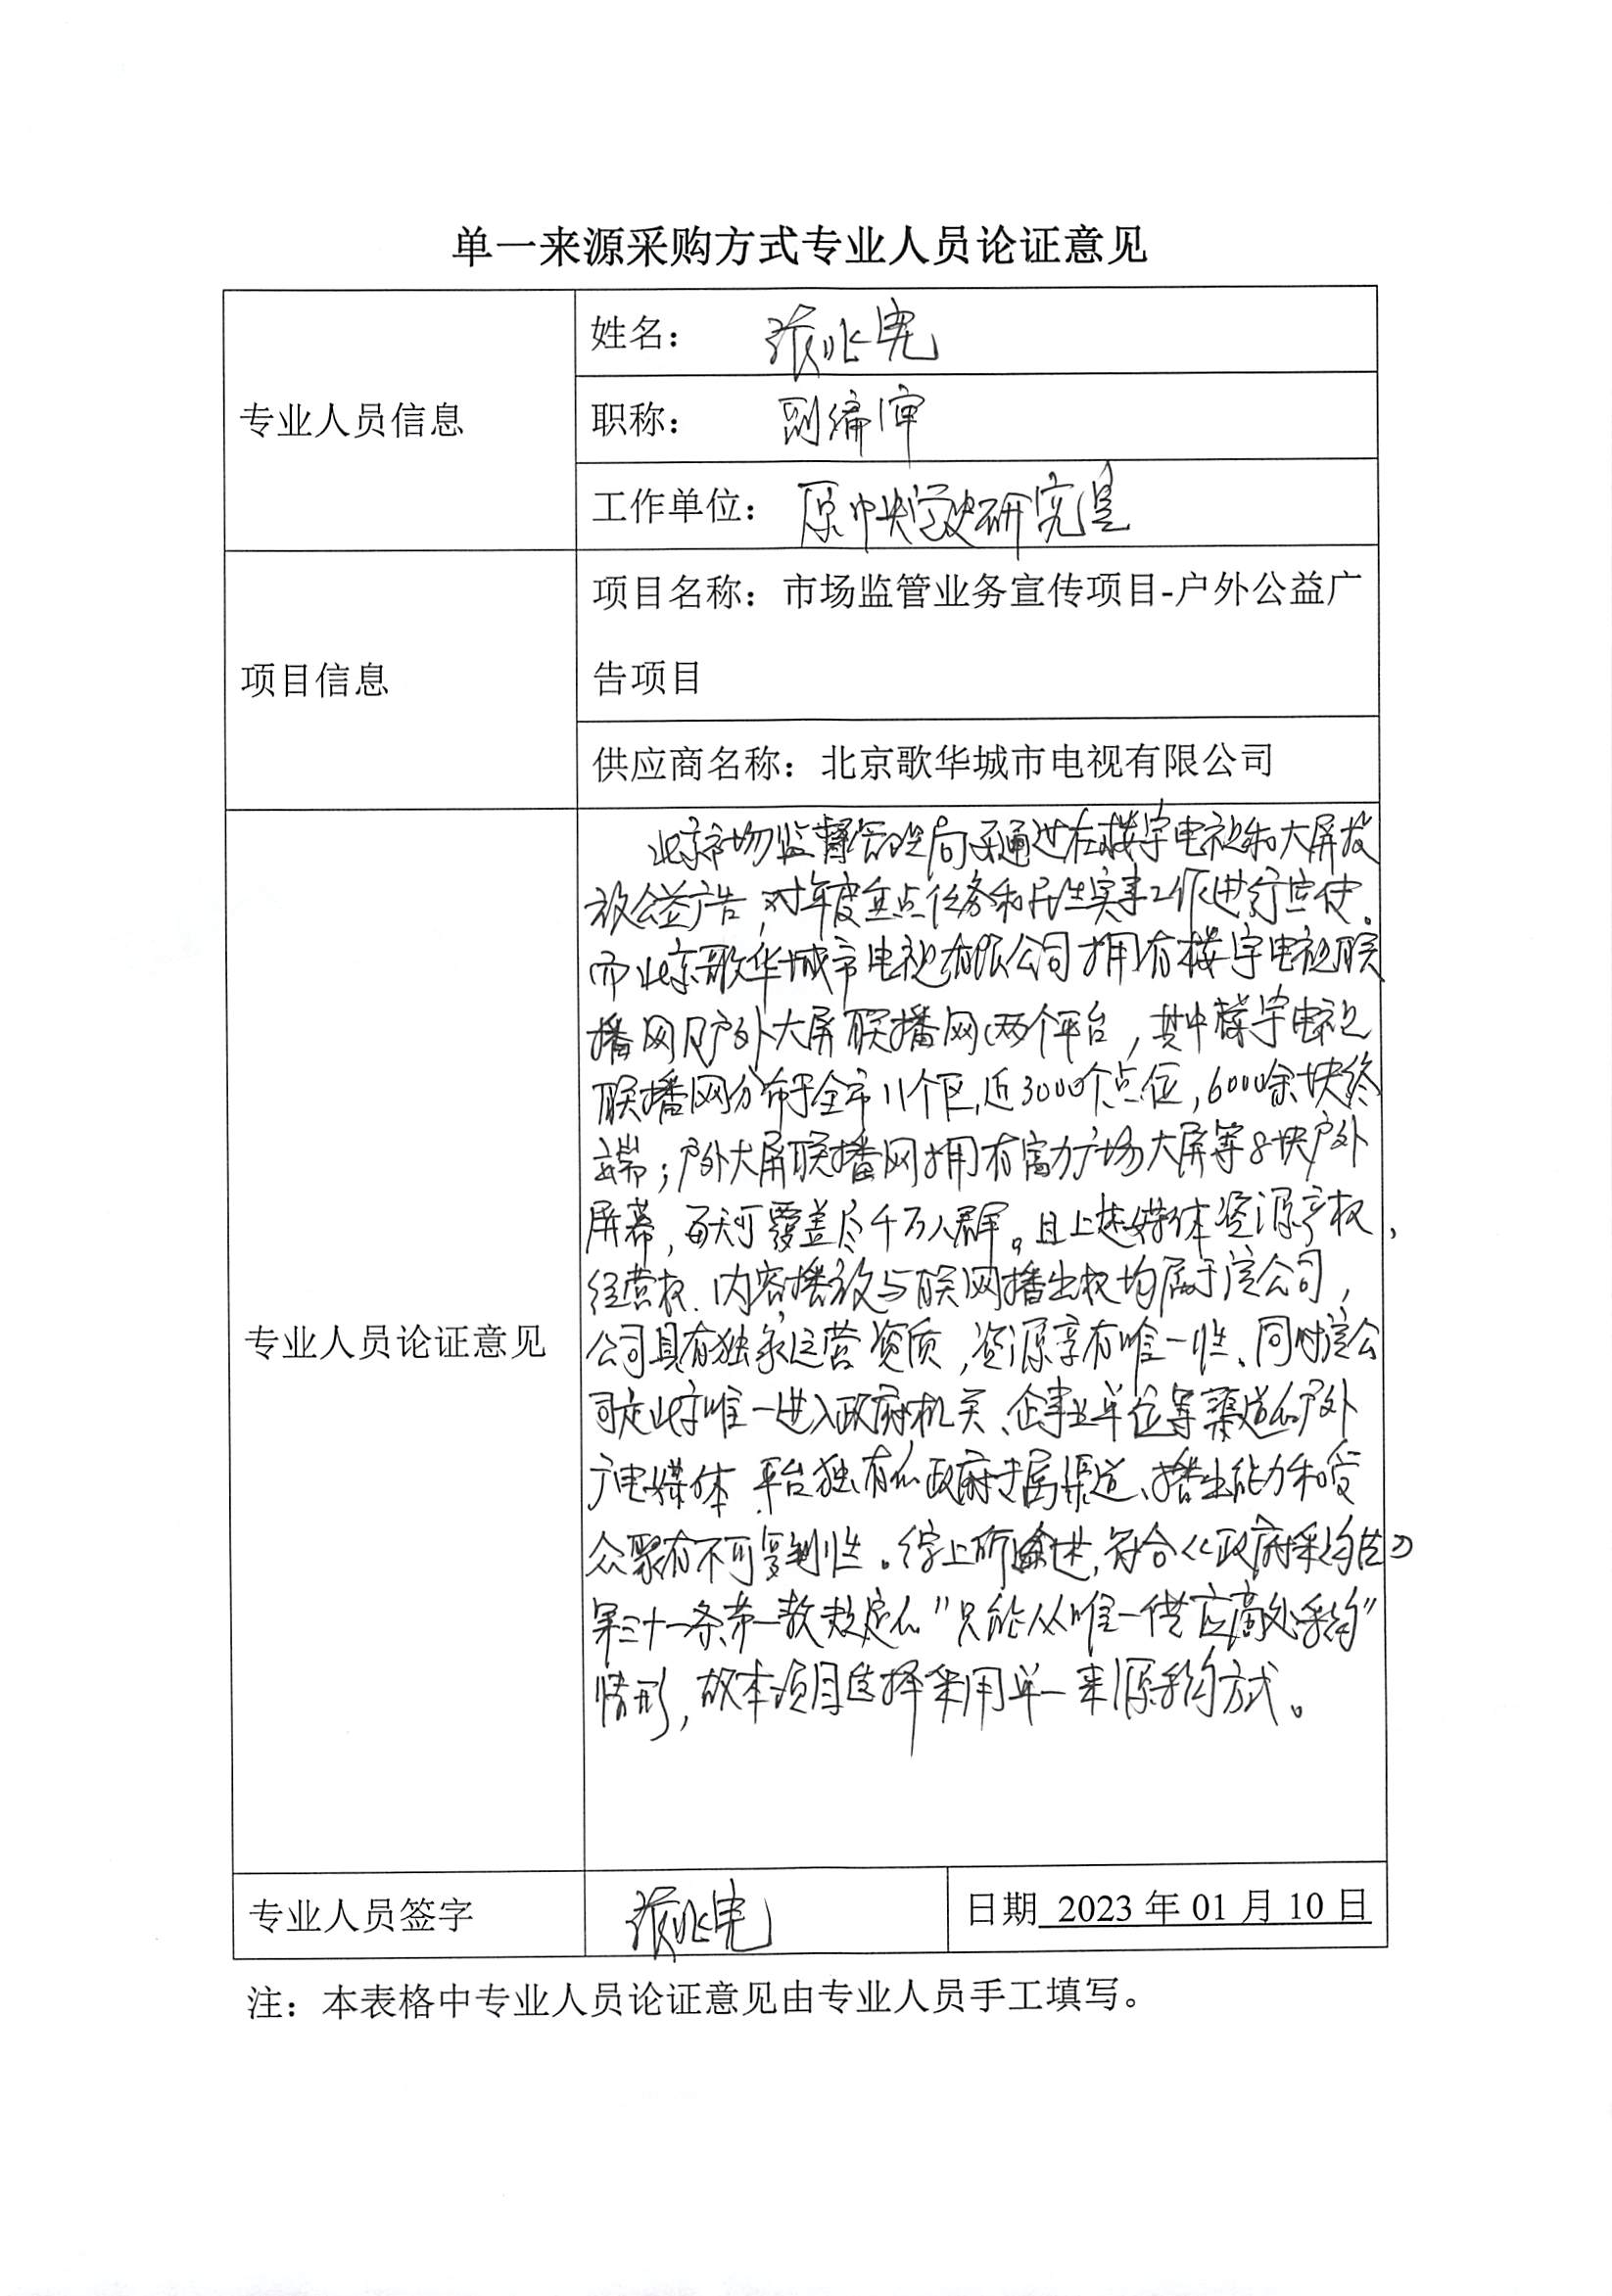 单一来源采购方式专业人员论证意见
专业人员信息
姓名：
职称： 副编审
工作单位： 原中央党史研究室
项目信息
项目名称：市场监管业务宣传项目-户外公益广
告项目
供应商名称：北京歌华城市电视有限公司
专业人员论证意见
北京市场监督管理局 通过在楼宇电视和大屏投
放公益广告，对年度重点任务和民生实事工作进行宣传。
而北京歌华城市电视有限公司拥有楼宇电视联
播网及户外大屏联播网两个平台，其中楼宇电视
联播网分布于全市11个区，近3000个点位，6000余块终
端；户外大屏联播网拥有富力广场大屏等8块户外
屏幕，每天可覆盖尽千万人群。且上述媒体资源产权、
经营权、内容播放与联网播出权均属于该公司，
公司具有独家运营资质，资源享有唯一性、同时该公
司是北京唯一进入政府机关、企事业单位等渠道的户外
广电媒体，平台独有的政府专属渠道、播出能力和受
众聚有不可复制性。综上所述，符合《政府采购法》
第三十一条第一款规定的“只能从唯一供应商处采购”
情形，故本项目选择采用单一来源采购方式。
专业人员签字
日期 2023 年 01 月 10 日
注：本表格中专业人员论证意见由专业人员手工填写。